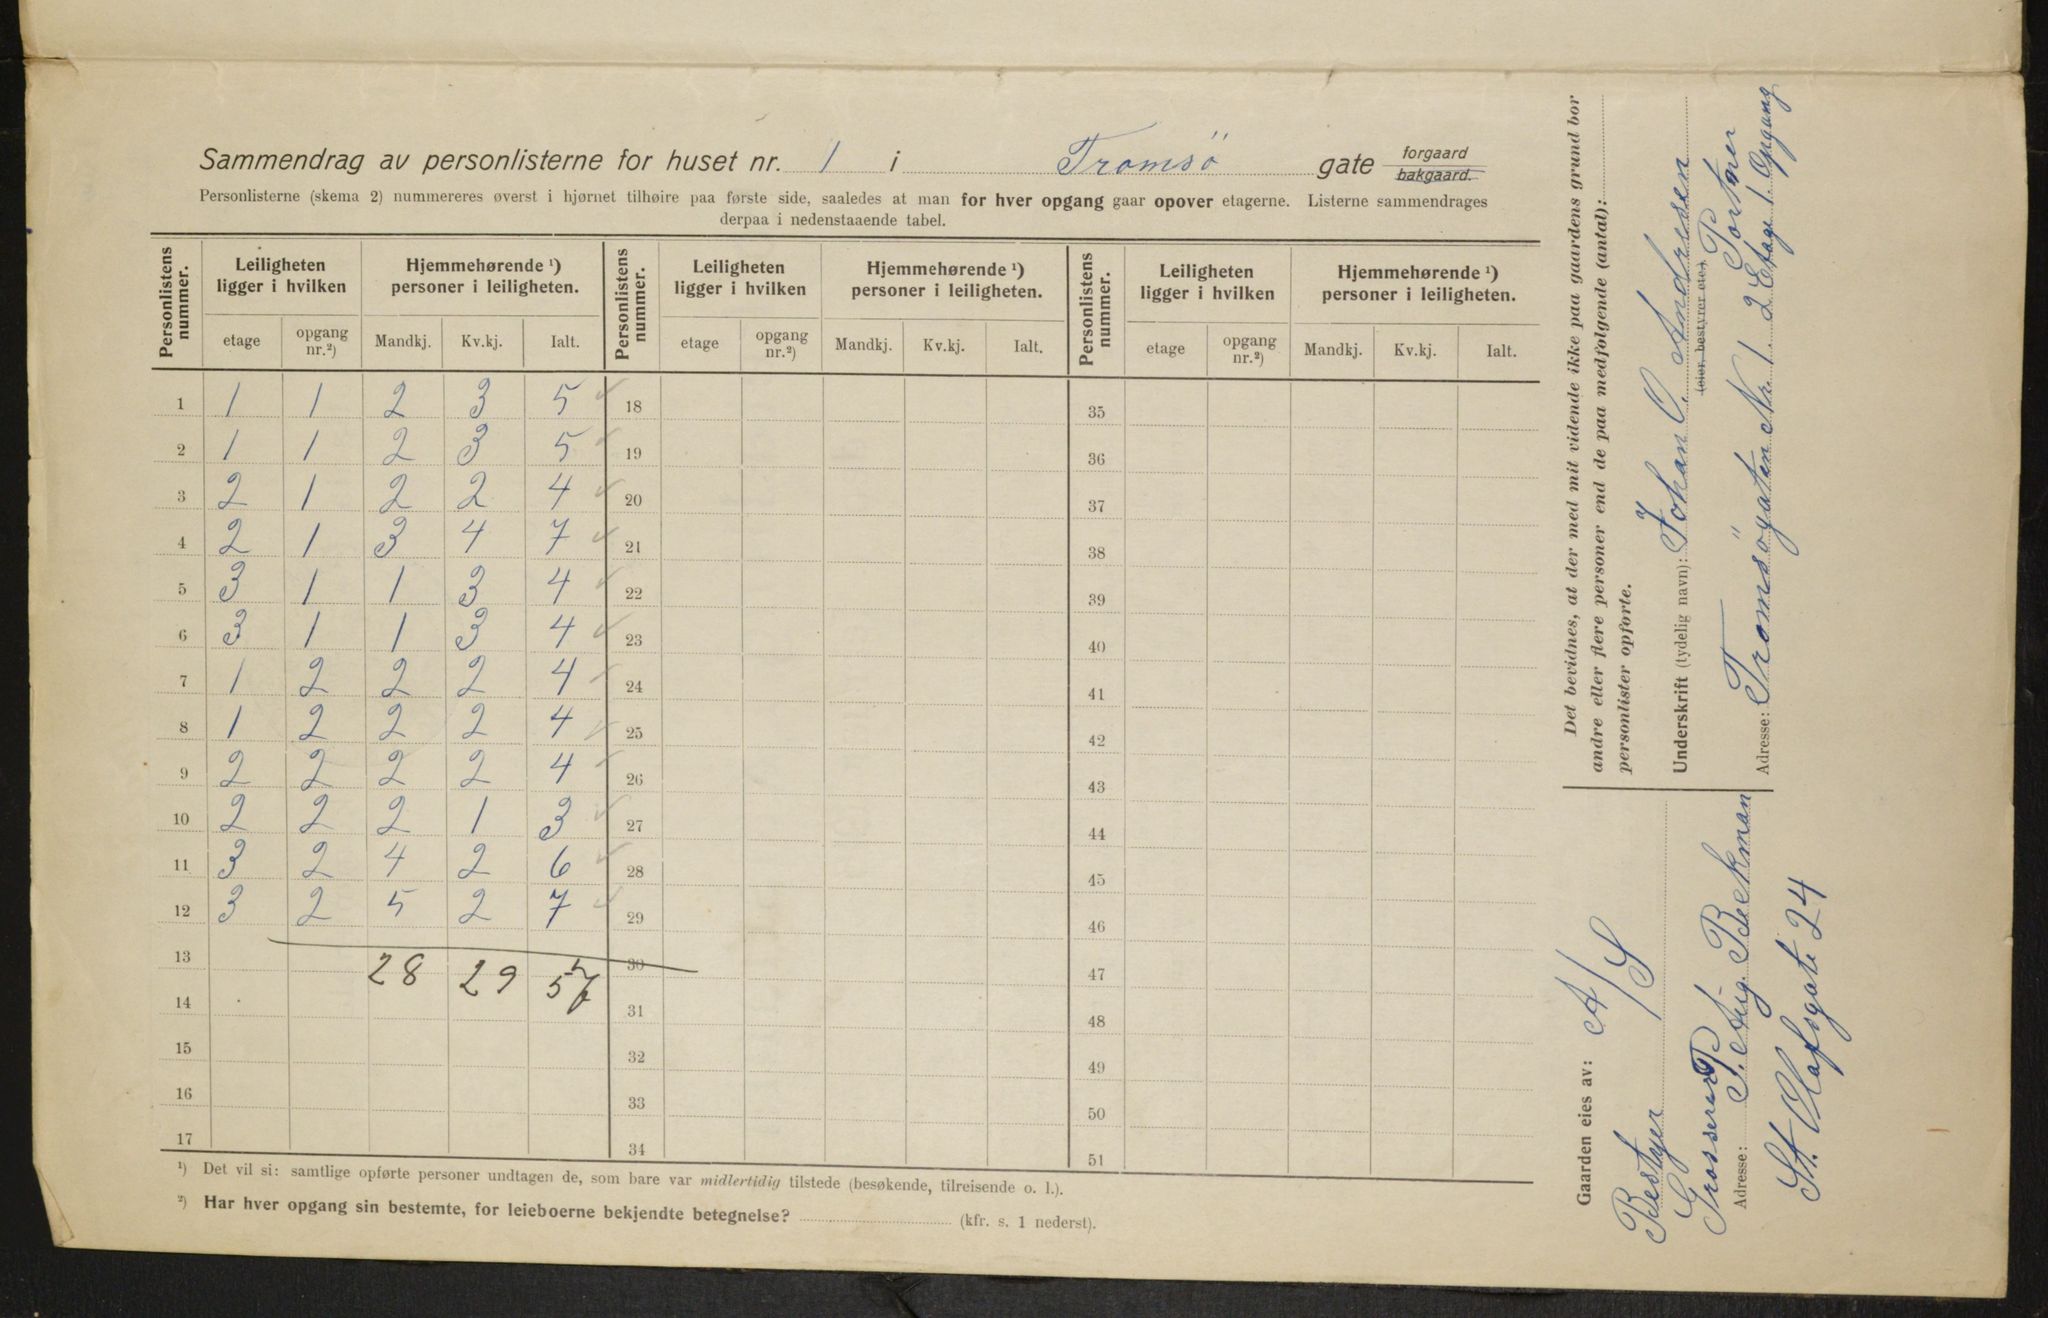 Sammendrag av personlisterne for huset nr. 1 i Tromsö gate forgaard bakgaard.
Personlisterne (skema 2) nummereres øverst i hjørnet tilhøire paa første side, saaledes at man for hver opgang gaar opover etagerne. Listerne sammendrages
derpaa i nedenstaaende tabel.
Personlistens nummer. Leiligheten ligger i hvilken Hjemmehørende ¹) personer i leiligheten. Personlistens nummer. Leiligheten ligger i hvilken Hjemmehørende ¹) personer i leiligheten. Personlistens nummer. Leiligheten ligger i hvilken Hjemmehørende ¹) personer i leiligheten.
etage opgang nr.²) Mandkj. Kv.kj. Ialt. etage opgang nr.²) Mandkj. Kv.kj. Ialt. etage opgang nr.²) Mandkj. Kv.kj. Ialt.
1 1 1 2 3 5 18 35
2 1 1 2 3 5 19 36
3 2 1 2 2 4 20 37
4 2 1 3 4 7 21 38
5 3 1 1 3 4 22 39
6 3 1 1 3 4 23 40
7 1 2 2 2 4 24 41
8 1 2 2 2 4 25 42
9 2 2 2 2 4 26 43
10 2 2 2 1 3 27 44
11 3 2 4 2 6 28 45
12 3 2 5 2 7 29 46
13 28 29 57 30 47
14 31 48
15 32 49
16 33 50
17 34 51
¹) Det vil si: samtlige opførte personer undtagen de, som bare var midlertidig tilstede (besøkende, tilreisende o. l.).
²) Har hver opgang sin bestemte, for leieboerne bekjendte betegnelse? (kfr. s. 1 nederst).
Det bevidnes, at der med mit vidende ikke paa gaardens grund bor
andre eller flere personer end de paa medfølgende (antal):
personlister opførte.
Underskrift (tydelig navn): Johan O. Andresen
(eier, bestyrer etc.) Portner
Adresse: Tromsögaten Nr. 1. 2 Etage 1. Opgang
Gaarden eies av: A/S
Bestyrer
Grosserer P. Aug. Beekman
Adresse: St. Olafsgate 24